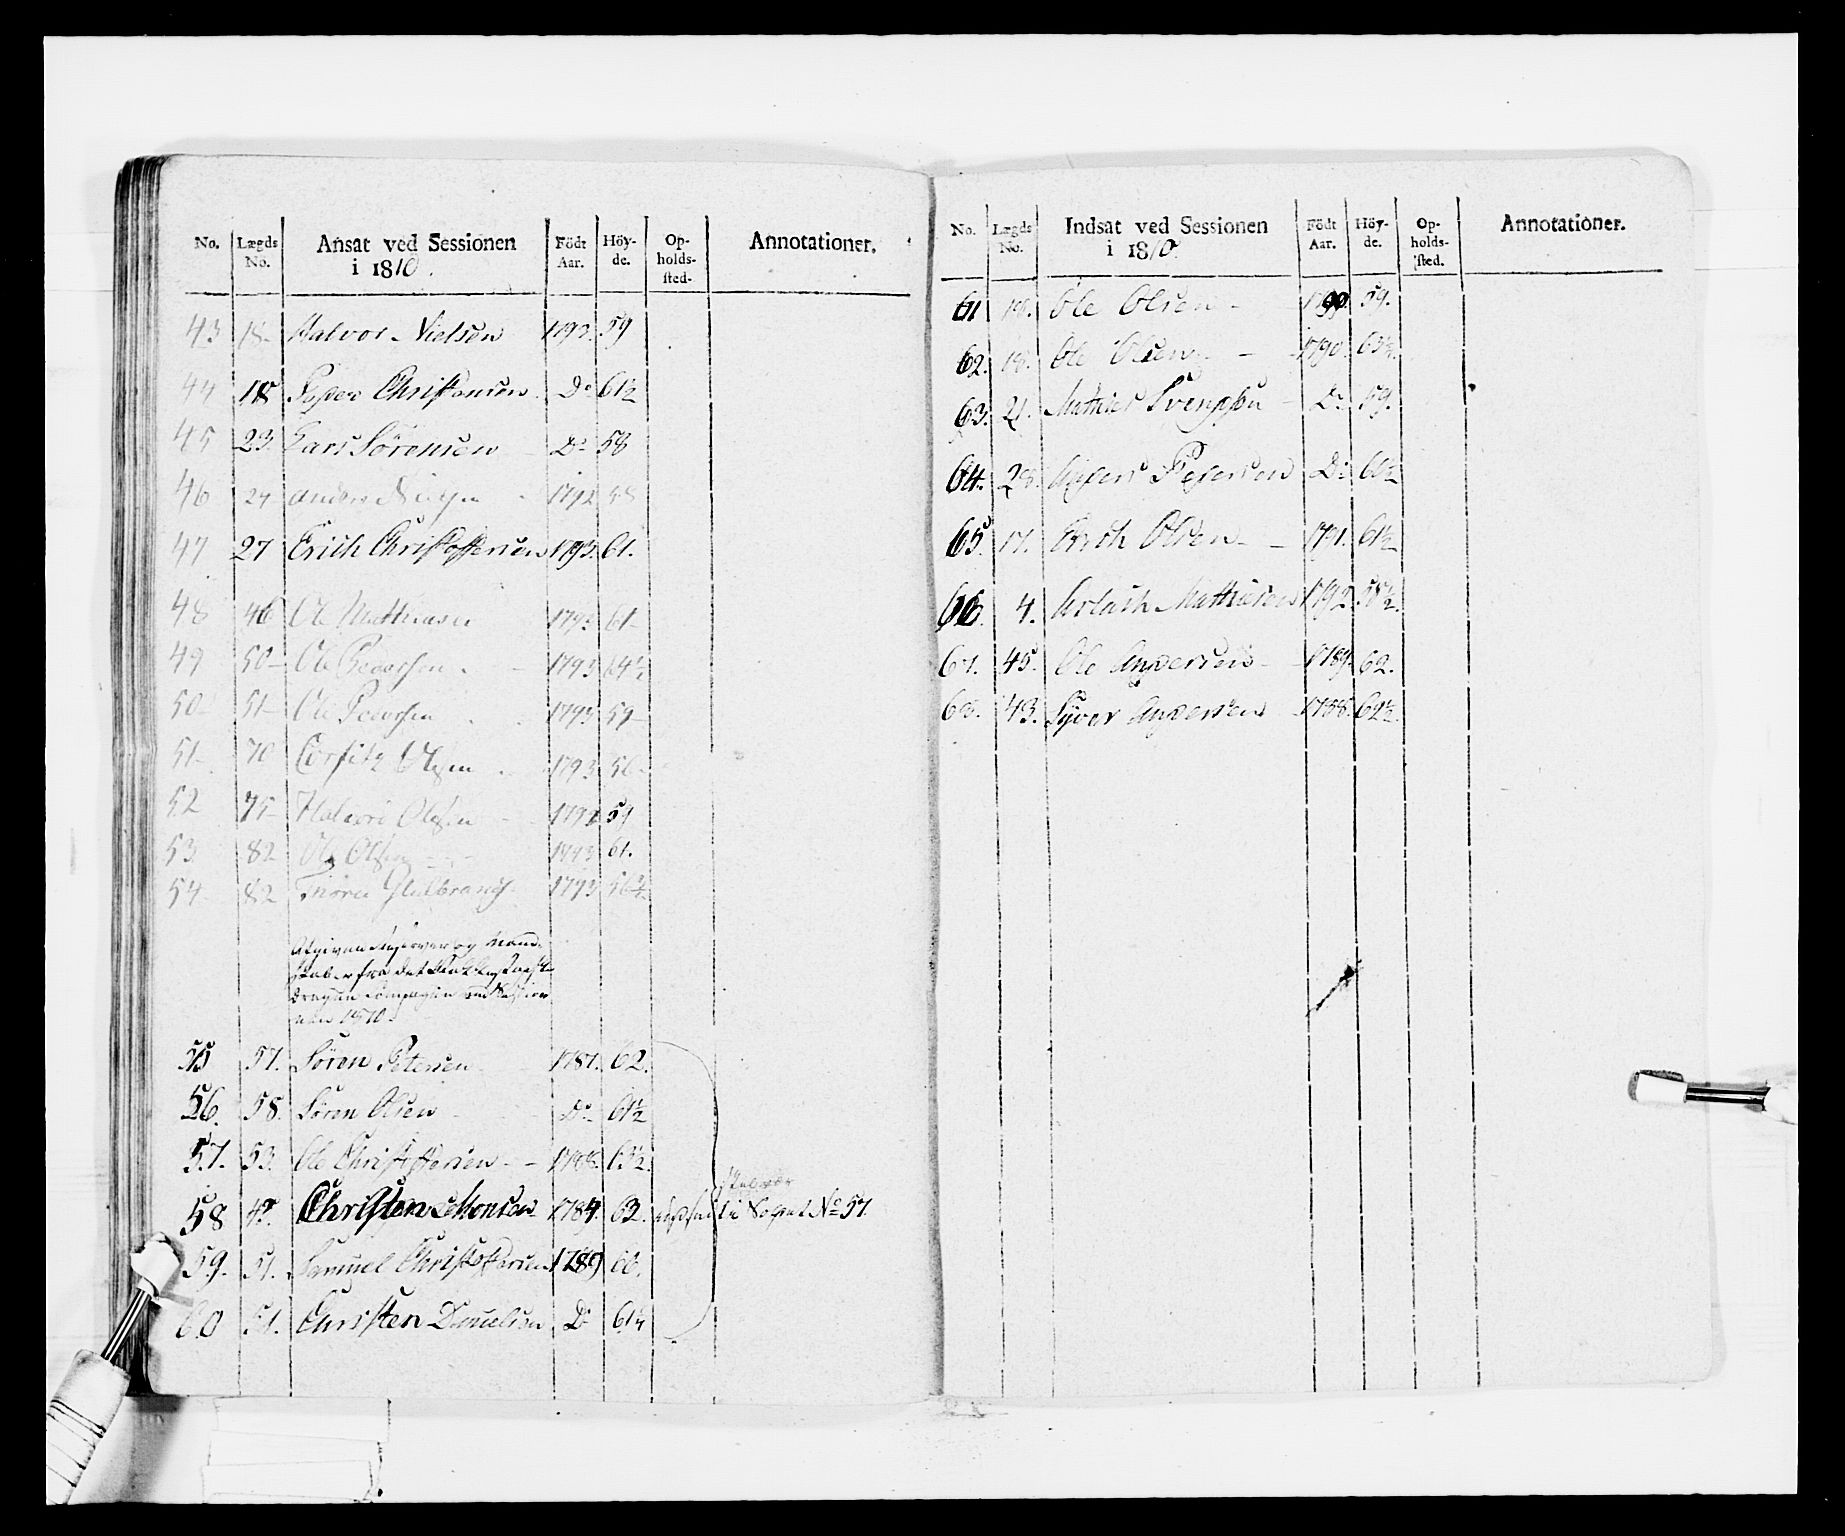 No. Lægds No. Ansat ved Sessionen i 1810. Födt Aar. Höyde. Opholdssted. Annotationer.
43 18 Halvor Nielsen 1792 59
44 18 Peder Christansen D° 61½
45 23 Lars Sörensen D° 58
46 27 Anders 1792 58
47 27 Erich Christoffersen 1793. 61.
48 46 Ole Mathiesen 1793 61
49 50 Ole Pedersen 1793 64½
50 51 Ole Pedersen 1793 59
51 70 Corfitz Olsen 1793 56
52 75 Halvor Olsen 1792 59
53 82 Ole Olsen 1793 61.
54 82 Gulbrands 1793 56½
Afgiven og Mand-
skaber fra det
Dragun Compagnie ved Session
1810.
55 57. Sören Petersen 1787. 62.
56. 58. Sören Olsen D° 61½
57. 53. Ole Christoffersen 1788. 63½
58 Christen Monsen 1784. 63. No 57.
59. 51. Samuel Christoffersen 1789 60.
60 51. Christen Danielsen D° 61¼
No. Lægds No. Indsat ved Sessionen i 1810. Födt Aar. Höyde. Opholdssted. Annotationer.
61 18. Ole Olsen 1790. 59.
62. 18. Ole Olsen 1790. 63½.
63. 21. Mathias Svendsen D° 59.
64. 28. Anders Pedersen D° 60½
65. 17. Erich Olsen 1791. 61½
66. 4. Aslach Mathiesen 1792 58½.
67. 45. Ole Andersen 1789. 62.
68. 43. Syver Andersen 1788. 62½.